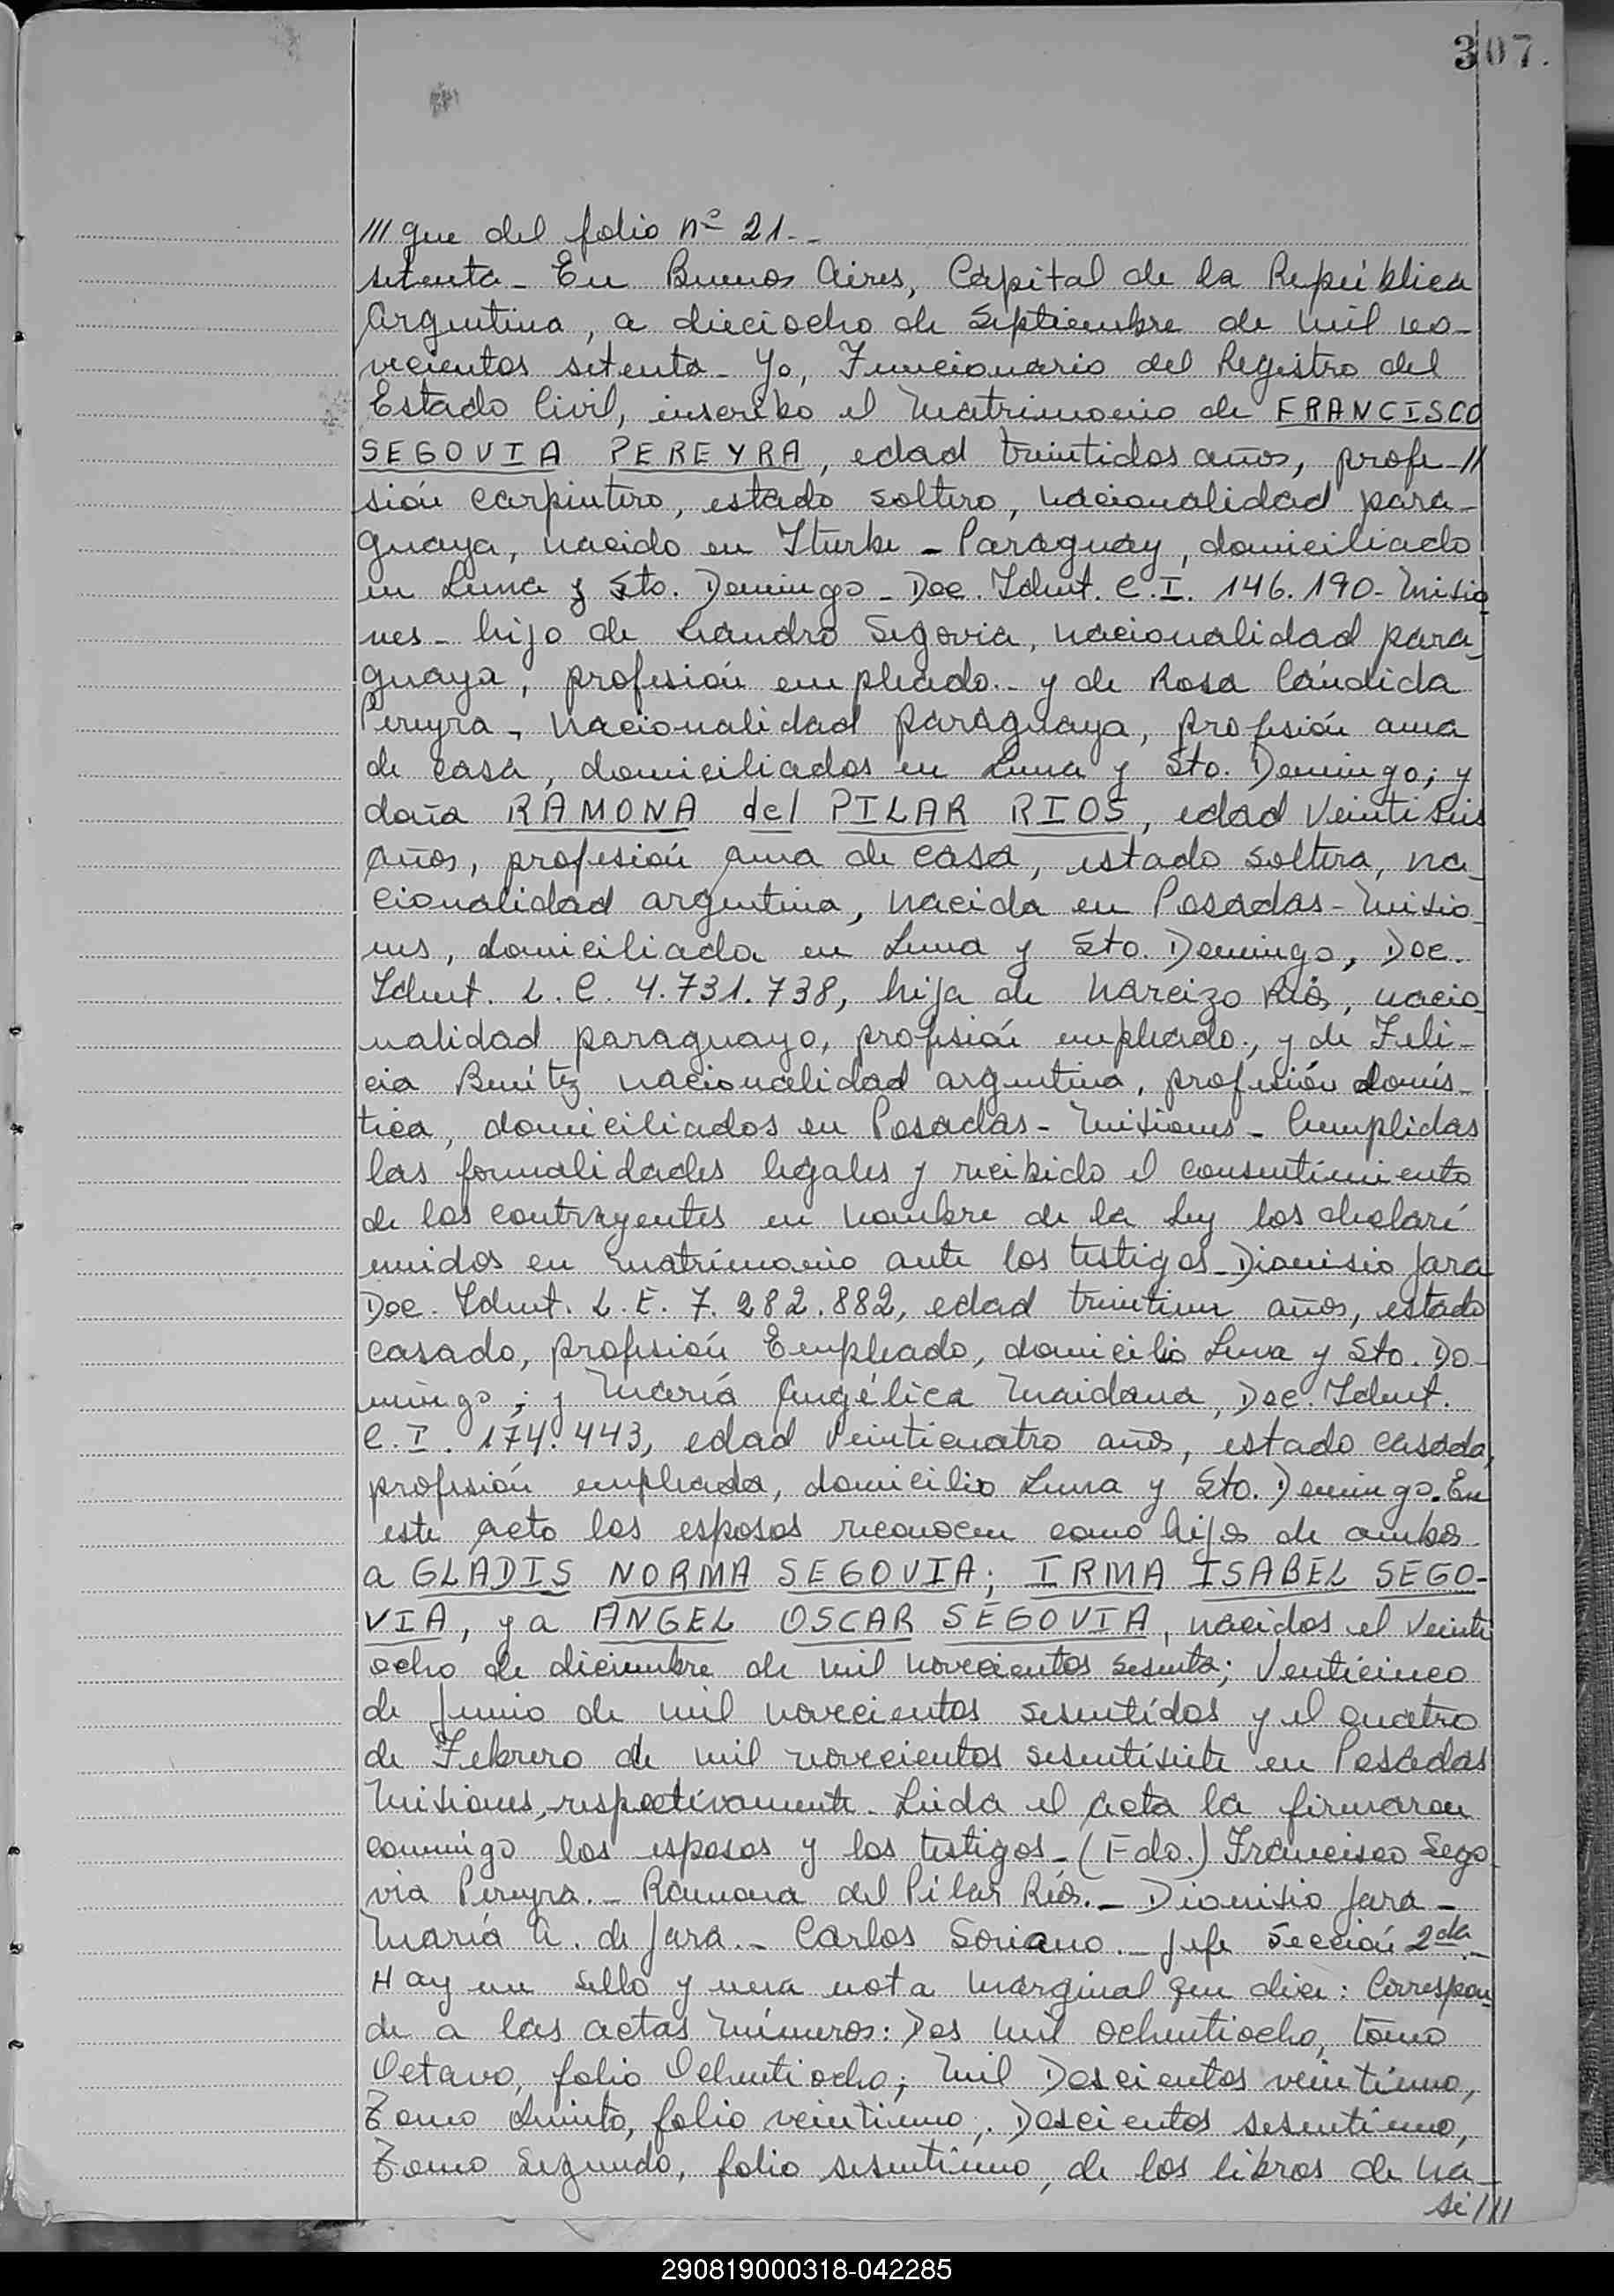 307.
///gue del folio nº 21.-
setenta- En Buenos Aires, Capital de la República
Argentina, a dieciocho de Septiembre de mil no-
vecientos setenta- Yo, Funcionario del Registro del
Estado Civil, inscribo el Matrimonio de FRANCISCO
SEGOVIA PEREYRA, edad treintidos años, profe-//
sión carpintero, estado soltero, nacionalidad para-
guaya, nacido en Iturbe - Paraguay, domiciliado
en Luna y Sto. Domingo - Doc. Ident. C.I. 146.190- Misio
nes- hijo de Leandro Segovia, nacionalidad para-
guaya, profesión empleado.- y de Rosa Cándida
Pereyra - nacionalidad paraguaya, profesión ama
de casa, domiciliados en Luna y Sto. Domingo; y
doña RAMONA del PILAR RIOS, edad Veintiseis
años, profesión ama de casa, estado soltera, na-
cionalidad argentina, nacida en Posadas- Misio-
nes, domiciliada en Luna y Sto. Domingo, Doc.
Ident. L.C. 4.731.738, hija de Narcizo Ríos, nacio-
nalidad paraguayo, profesión empleado., y de Feli-
cia Benítez nacionalidad argentina, profesión domés-
tica, domiciliados en Posadas- Misiones- Cumplidas
las formalidades legales y recibido el consentimiento
de los contrayentes en nombre de la Ley los declaré
unidos en matrimonio ante los testigos- Dionisio Jara
Doc. Ident. L.E. 7.282.882, edad treintiun años, estado
casado, profesión Empleado, domicilio Luna y Sto. Do-
mingo; y María Angélica Maidana, Doc. Ident.
C.I. 174.443, edad Veinticuatro años, estado casada,
profesión empleada, domicilio Luna y Sto. Domingo. En
este acto los esposos reconocen como hijos de ambos
a GLADIS NORMA SEGOVIA; IRMA ISABEL SEGO-
VIA, y a ANGEL OSCAR SEGOVIA, nacidos el Veinti
ocho de diciembre de mil novecientos sesenta; Venticinco
de Junio de mil novecientos sesentidos y el cuatro
de Febrero de mil novecientos sesentisiete en Posadas
Misiones, respectivamente- Leída el acta la firmaron
conmigo los esposos y los testigos- (Fdo.) Francisco Sego
via Pereyra.- Ramona del Pilar Ríos.- Dionisio Jara-
María A. de Jara.- Carlos Soriano.- Jefe Sección 2da.-
Hay un sello y una nota marginal que dice: Correspon-
de a las actas números: Dos mil ochentiocho, tomo
Octavo, folio Ochentiocho; Mil Doscientos veintiuno,
Tomo Quinto, folio veintiuno; Doscientos sesentiuno,
Tomo Segundo, folio sesentiuno, de los libros de Na-
si///
290819000318-042285